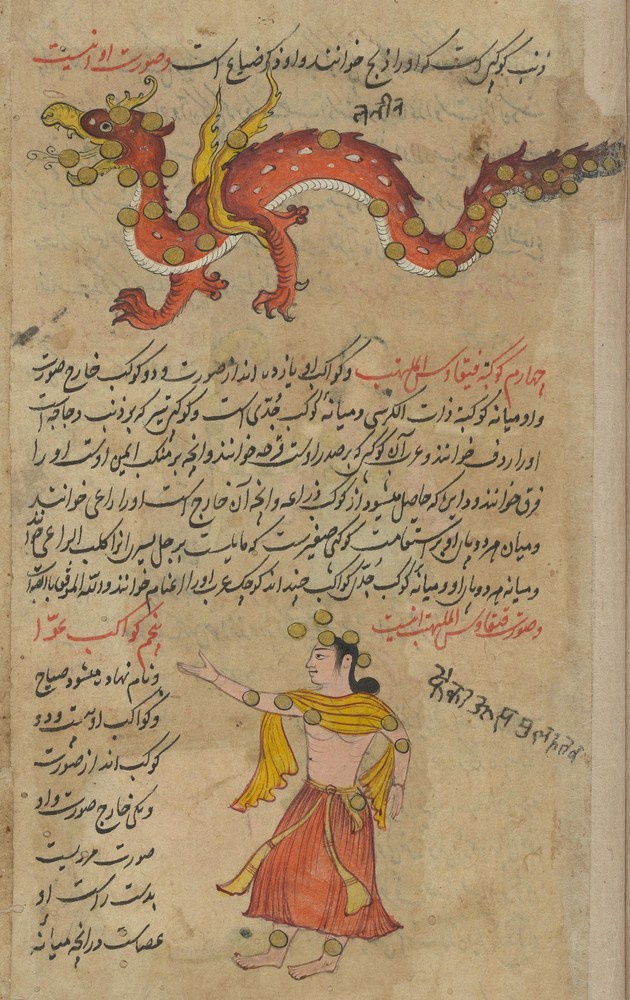 ذنب کوکبی است که او را ذیخ خوانند و او ذکر ضباع است وصورت او اینست
چهارم کوکبة قیقاوس الملتهب و کواکب او یازده اند از صورت و دو کوکب خارج صورت
و او میانه کوکبة ذات الکرسی و میانه کوکب جدی است و کوکب نیر که بر ذنب دجاجه است
او را ردف خوانند و عرب آن کوکب که بر صدر اوست قرحه خوانند و آنچه بر منکب ایمن اوست او را
فرق خوانند و دایره که حاصل میشود از کوکب ذراعه و آنچه آن خارج است او را راعی خوانند
و میان هر دو پای او بر استقامت کوکبی صغیر است که مایلست بر جل یسر آنرا کلب الراعی
و میانه هر دو پای او و میانه کوکب جدی کواکب چند اند کوچک عرب او را اغنام خوانند والله الموفق
وصورت قیقاوس الملتهب اینست
پنجم کواکب عوّا
و نام نهاده میشود صیاح
و کواکب او بیست و دو
کوکب اند از صورت
و یکی خارج صورت و او
صورت مردیست
بدست راست او
عصاست در آنچه میانه